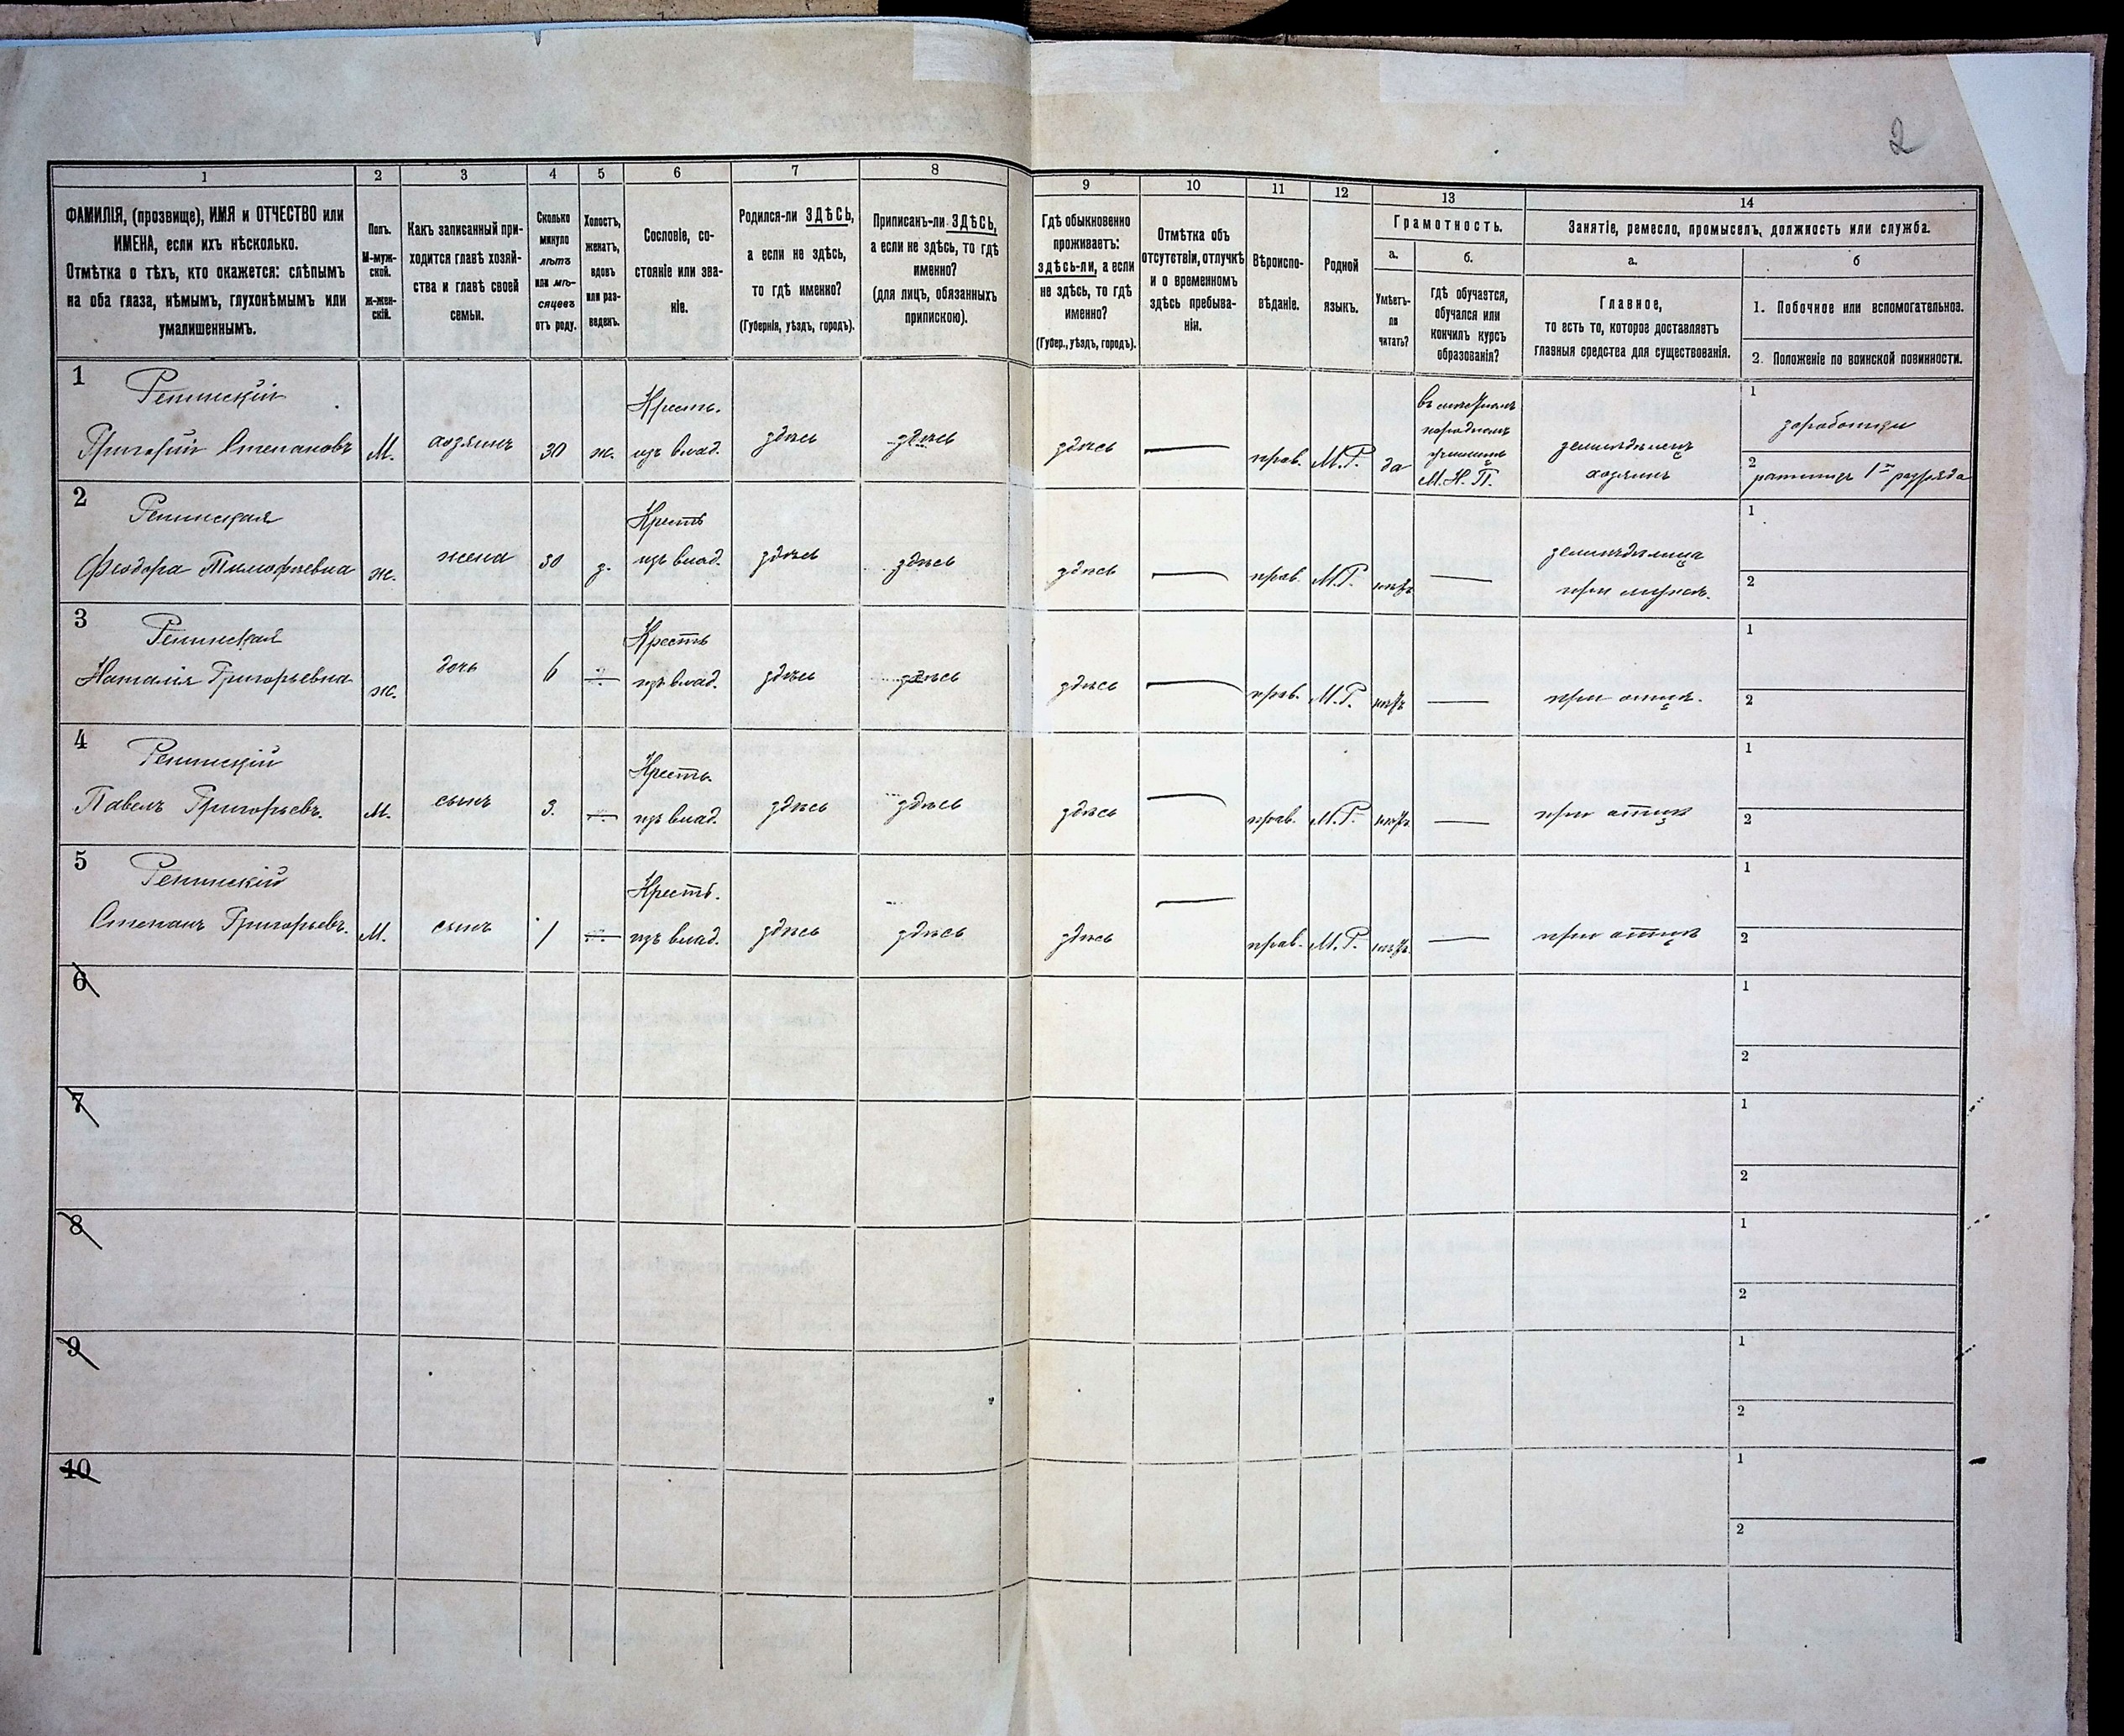 2
1
2
3
4
5
6
7
8
9
10
11
12
13
14
ФАМИЛІЯ, (прозвище), ИМЯ и ОТЧЕСТВО или
ИМЕНА, если ихъ нѣсколько.
Отмѣтка о тѣхъ, кто окажется: слѣпымъ
на оба глаза, нѣмымъ, глухонѣмымъ или
умалишеннымъ.
Полъ.
М-муж-
ской.
ж-жен-
скій.
Какъ записанный при-
ходится главѣ хозяй-
ства и главѣ своей
семьи.
Сколько
минуло
лѣтъ
или мѣ-
сяцевъ
отъ роду.
Холостъ,
женатъ,
вдовъ
или раз-
веденъ.
Сословіе, со-
стояніе или зва-
ніе.
Родился-ли ЗДѢСЬ,
а если не здѣсь,
то гдѣ именно?
(Губернія, уѣздъ, городъ).
Приписанъ-ли ЗДѢСЬ,
а если не здѣсь, то гдѣ
именно?
(для лицъ, обязанныхъ
припискою).
Гдѣ обыкновенно
проживаетъ:
здѣсь-ли, а если
не здѣсь, то гдѣ
именно?
(Губер., уѣздъ, городъ).
Отмѣтка объ
отсутствіи, отлучкѣ
и о временномъ
здѣсь пребыва-
ніи.
Вѣроиспо-
вѣданіе.
Родной
языкъ.
Грамотность.
а.
Умѣетъ-
ли
читать?
б.
гдѣ обучается,
обучался или
кончилъ курсъ
образованія?
Занятіе, ремесло, промыселъ, должность или служба.
а.
Главное,
то есть то, которое доставляетъ
главныя средства для существованія.
б
1. Побочное или вспомогательное.
2. Положеніе по воинской повинности.
1
Репинскій
Григорій Степановъ
М.
хозяинъ
30
ж.
Кресть.
изъ влад.
здѣсь
здѣсь
здѣсь
прав.
М.Р.
да
народномъ
М.Н.П.
земледѣлецъ
хозяинъ
1
заработки
2
ратникъ 1го разряда
2
Репинская
Феодора Тимофѣевна
ж.
жена
30
з.
Кресть
изъ влад.
здѣсь
здѣсь
здѣсь
прав.
М.Р.
нѣтъ
земледѣлица
при мужѣ.
1
2
3
Репинская
Наталія Григорьевна
ж.
дочь
6
Кресть
изъ влад.
здѣсь
здѣсь
здѣсь
прав.
М.Р.
нѣтъ
при отцѣ.
1
2
4
Репинскій
Павелъ Григорьевъ.
М.
сынъ
3.
Кресть.
изъ влад.
здѣсь
здѣсь
здѣсь
прав.
М.Р.
нѣтъ
при отцѣ
1
2
5
Репинскій
Степанъ Григорьевъ.
М.
сынъ
1
Кресть.
изъ влад.
здѣсь
здѣсь
здѣсь
прав.
М.Р.
нѣтъ
при отцѣ
1
2
6
1
2
7
1
2
8
1
2
9
1
2
10
1
2